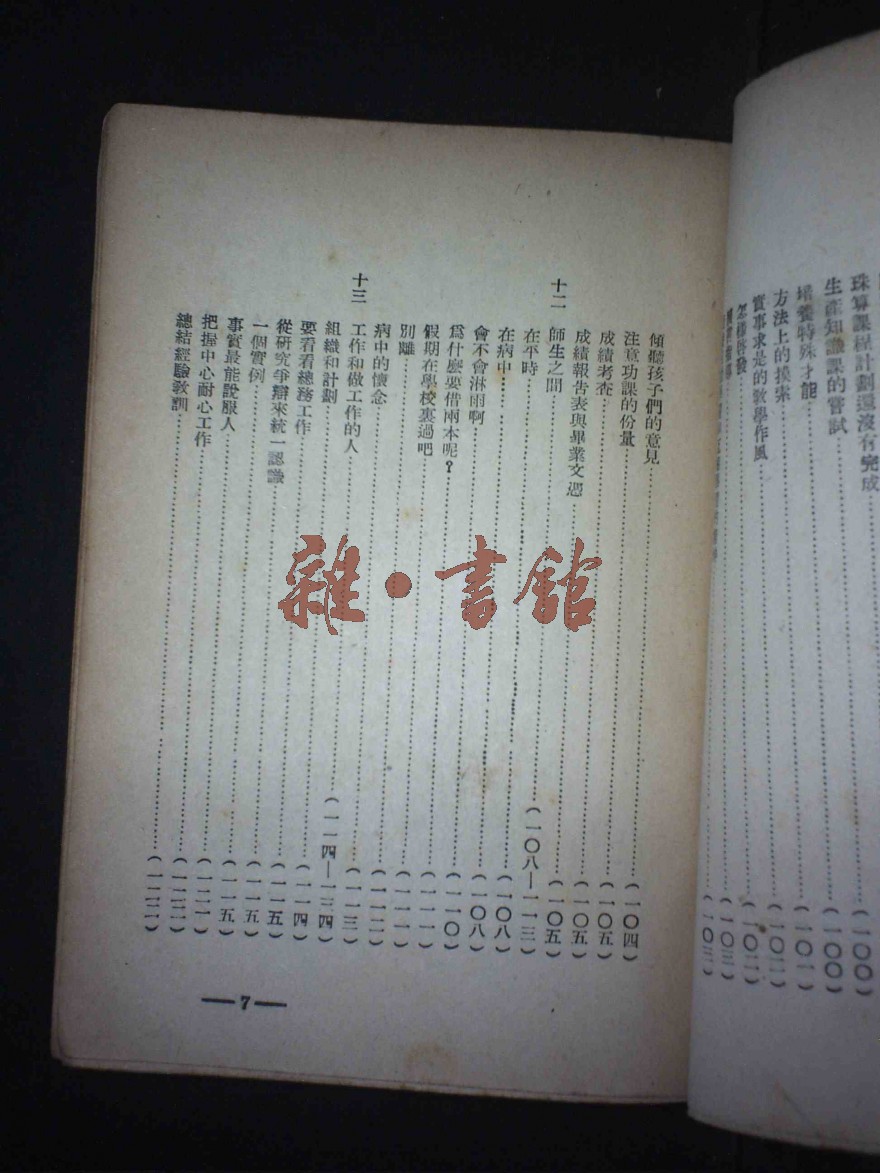 珠算課程計劃還沒有完成……(一〇〇)
生產知識課的嘗試……(一〇〇)
培養特殊才能……(一〇一)
方法上的摸索……(一〇二)
實事求是的教學作風……(一〇二)
怎樣啓發……
傾聽孩子們的意見……(一〇四)
注意功課的份量……(一〇五)
成績考查……(一〇五)
成績報告表與畢業文憑……(一〇五)
十二 師生之間……(一〇八—一一三)
在平時……(一〇八)
在病中……(一〇八)
會不會淋雨啊……(一一〇)
爲什麼要借兩本呢?……(一一一)
假期在學校裏過吧……(一一一)
別離……(一一二)
病中的懷念……(一一三)
十三 工作和做工作的人……(一一四—一三四)
組織和計劃……(一一四)
要看看總務工作……(一一五)
從研究爭辯來統一認識……(一一五)
一個實例……(一一五)
事實最能說服人……(一二一)
把握中心耐心工作……(一二二)
總結經驗教訓……(一二二)
—7—
雜·書館